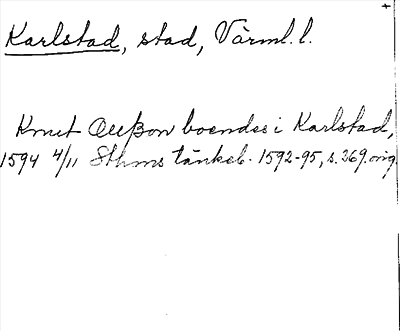 Karlstad, stad, Värml. l.
Knut Oleßon boendes i Karlstad,
1594 4/11 Sthms tänkeb. 1592-95, s. 269. orig.